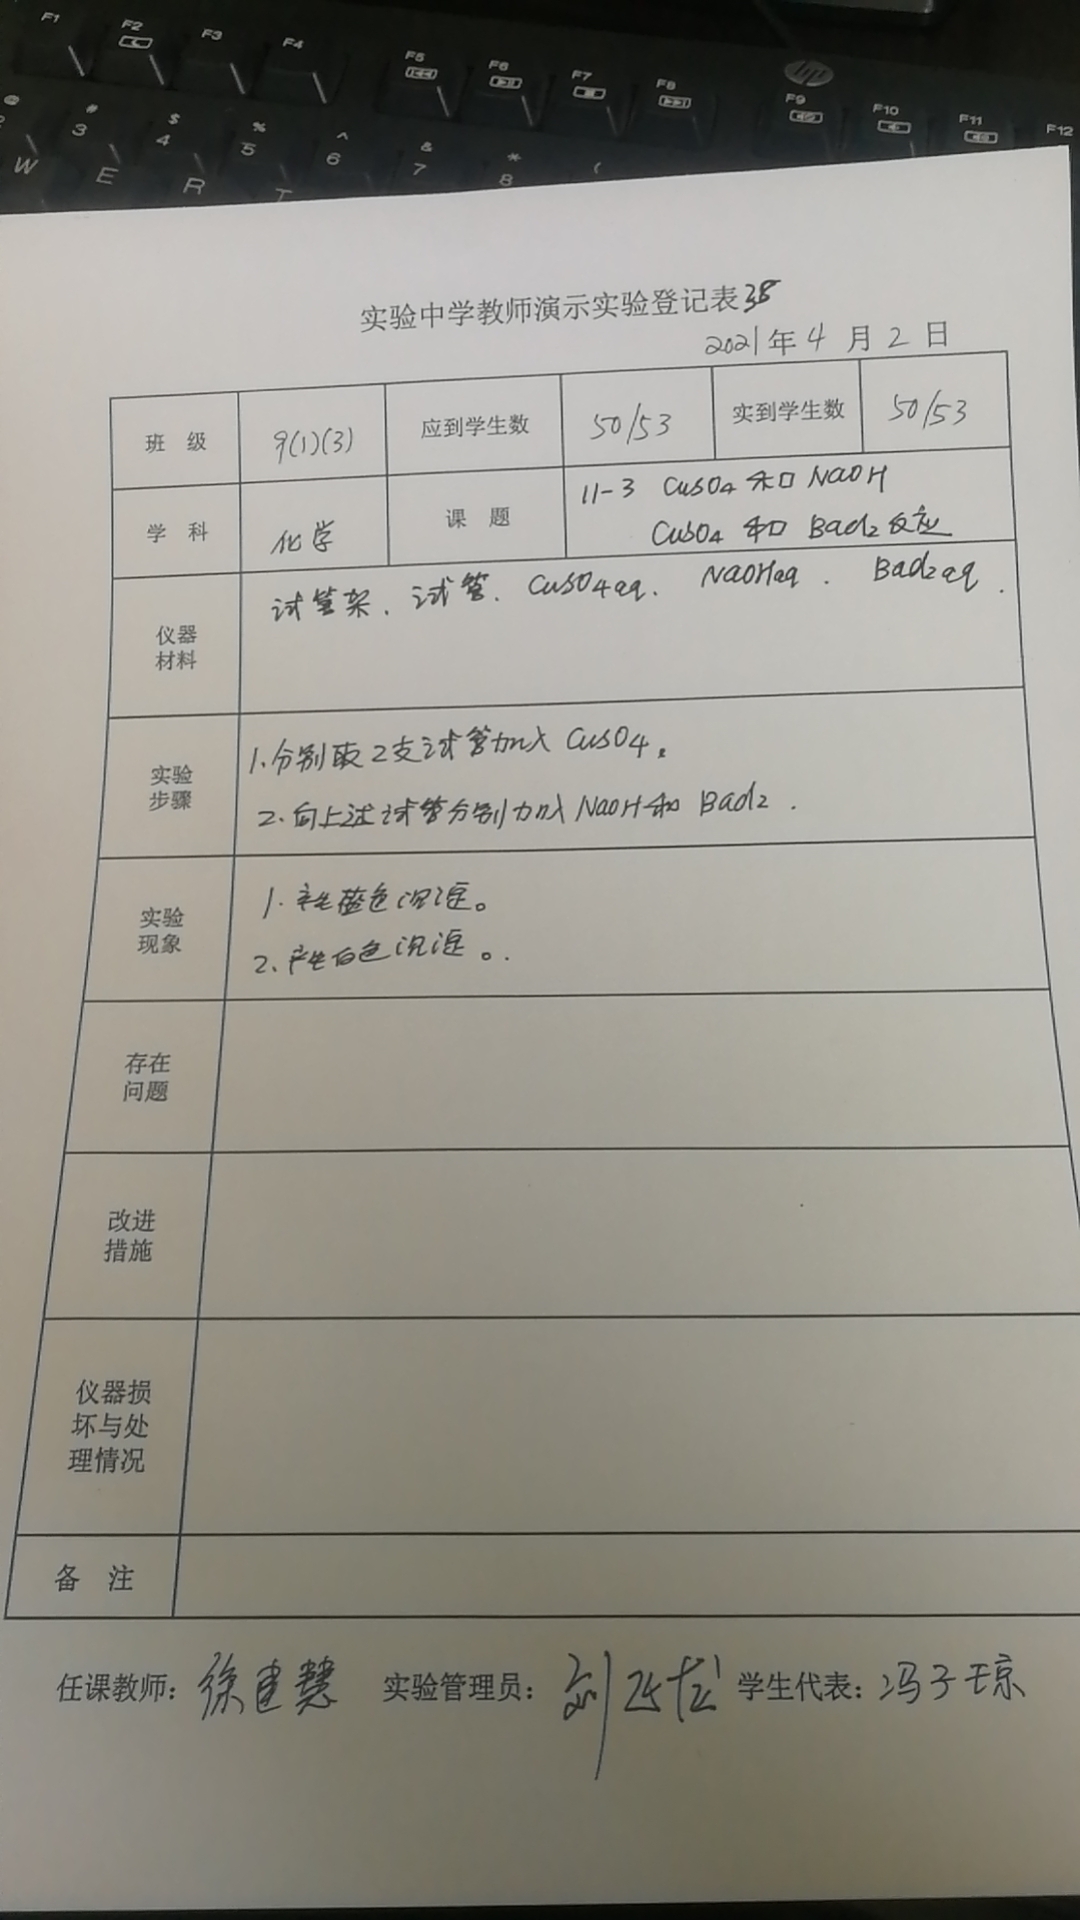 F1 F2 F3 F4 F5 F6 F7 F8 F9 F10 F11 F12
hp
@ # $ % ^ & * (
2 3 4 5 6 7 8
W E R T
实验中学教师演示实验登记表38
2021年4月2日
班 级 9(1)(3) 应到学生数 50/53 实到学生数 50/53
学 科 化学 课 题 11-3 CuSO4和NaOH
CuSO4和BaCl2反应
仪器
材料
试管架、试管、CuSO4aq、NaOHaq、BaCl2aq.
实验
步骤
1.分别取2支试管加入CuSO4。
2.向上述试管分别加入NaOH和BaCl2.
实验
现象
1.产生蓝色沉淀。
2.产生白色沉淀。
存在
问题
改进
措施
仪器损
坏与处
理情况
备 注
任课教师：徐建慧 实验管理员：刘 学生代表：冯子琼